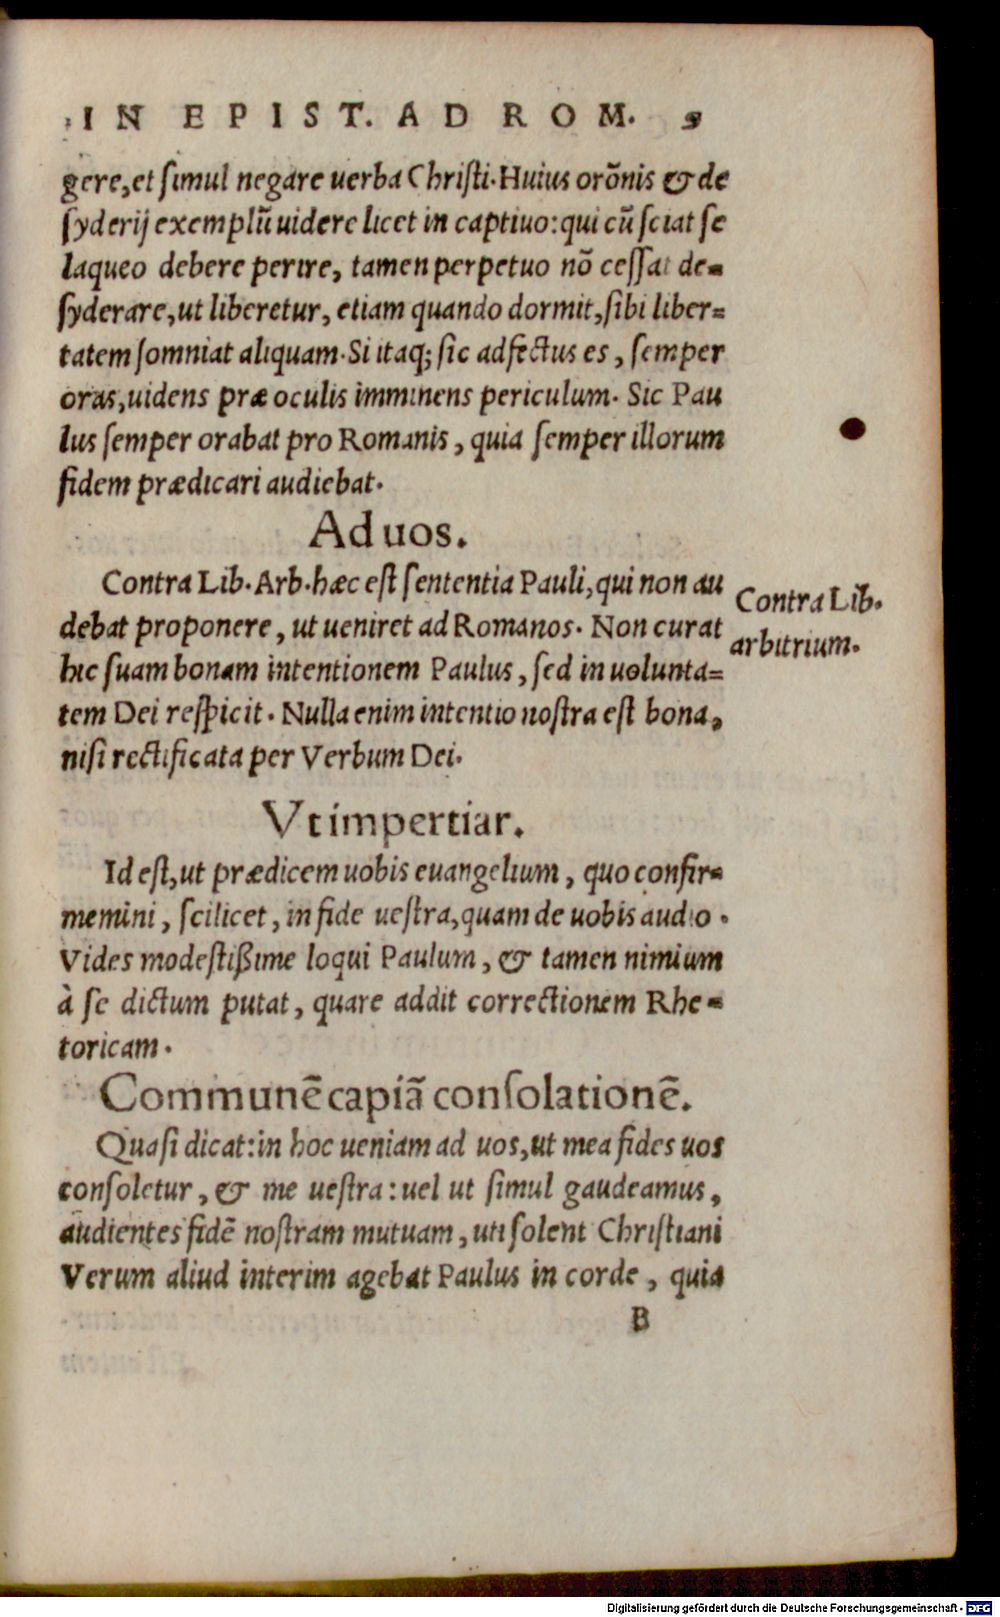 IN EPIST. AD ROM. 9
gere, et simul negare uerba Christi. Huius orõnis & de
syderij exemplũ uidere licet in captiuo: qui cũ sciat se
laqueo debere perire, tamen perpetuo nõ cessat de-
syderare, ut liberetur, etiam quando dormit, sibi liber-
tatem somniat aliquam. Si itaq; sic adfectus es, semper
oras, uidens præ oculis imminens periculum. Sic Pau
lus semper orabat pro Romanis, quia semper illorum
fidem prædicari audiebat.
Ad uos.
Contra Lib. Arb. hæc est sententia Pauli, qui non au
debat proponere, ut ueniret ad Romanos. Non curat
hic suam bonam intentionem Paulus, sed in uolunta-
tem Dei respicit. Nulla enim intentio nostra est bona,
nisi rectificata per Verbum Dei.
Contra Lib.
arbitrium.
Vt impertiar.
Id est, ut prædicem uobis euangelium, quo confir-
memini, scilicet, in fide uestra, quam de uobis audio.
Vides modestißime loqui Paulum, & tamen nimium
à se dictum putat, quare addit correctionem Rhe-
toricam.
Communẽ capiã consolationẽ.
Quasi dicat: in hoc ueniam ad uos, ut mea fides uos
consoletur, & me uestra: uel ut simul gaudeamus,
audientes fidẽ nostram mutuam, uti solent Christiani
Verum aliud interim agebat Paulus in corde, quia
B
Digitalisierung gefördert durch die Deutsche Forschungsgemeinschaft - DFG